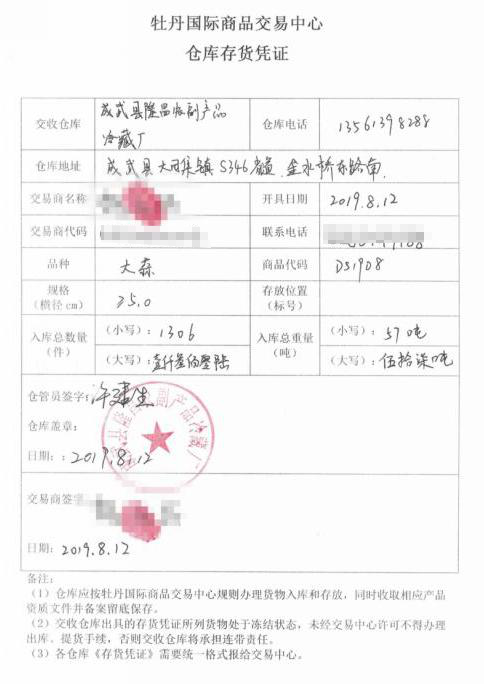 牡丹国际商品交易中心
仓库存货凭证
交收仓库
成武县隆昌农副产品
冷藏厂
仓库电话
13561398288
仓库地址
成武县大田集镇S346省道 金水桥东路南
交易商名称
开具日期
2019.8.12
交易商代码
联系电话
品种
大蒜
商品代码
DS1908
规格
(横径cm)
≥5.0
存放位置
(标号)
入库总数量
(件)
(小写):1306
(大写):壹仟叁佰零陆
入库总重量
(吨)
(小写):57吨
(大写):伍拾柒吨
仓管员签字:
仓库盖章:
日期::2019.8.12
交易商签字
日期:2019.8.12
备注:
(1)仓库应按牡丹国际商品交易中心规则办理货物入库和存放,同时收取相应产品
资质文件并备案留底保存。
(2)交收仓库出具的存货凭证所列货物处于冻结状态,未经交易中心许可不得办理
出库、提货手续,否则交收仓库将承担连带责任。
(3)各仓库《存货凭证》需要统一格式报给交易中心。